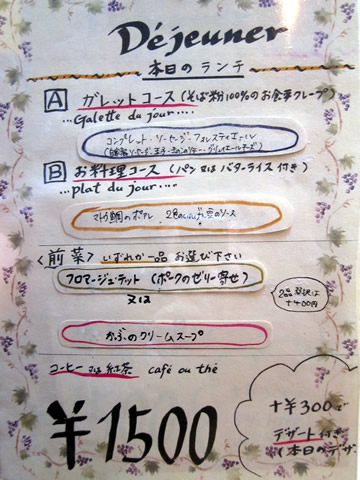 Déjeuner
本日のランチ
A ガレットコース(そば粉100%のお食事クレープ)
...Galette du jour....
コンプレット・ソーセージ・フォレスティエール
B お料理コース(パン又はバターライス付き)
...plat du jour....
マトウ鯛のポアレ 2色のソース
〈前菜〉いずれか一品 お選び下さい
フロマージュ・テット(ポークのゼリー寄せ)
又は
2品選択は
+400円
かぶのクリームスープ
コーヒー又は紅茶 café ou thé
¥1500
+¥300で
デザート付
(本日のデザ